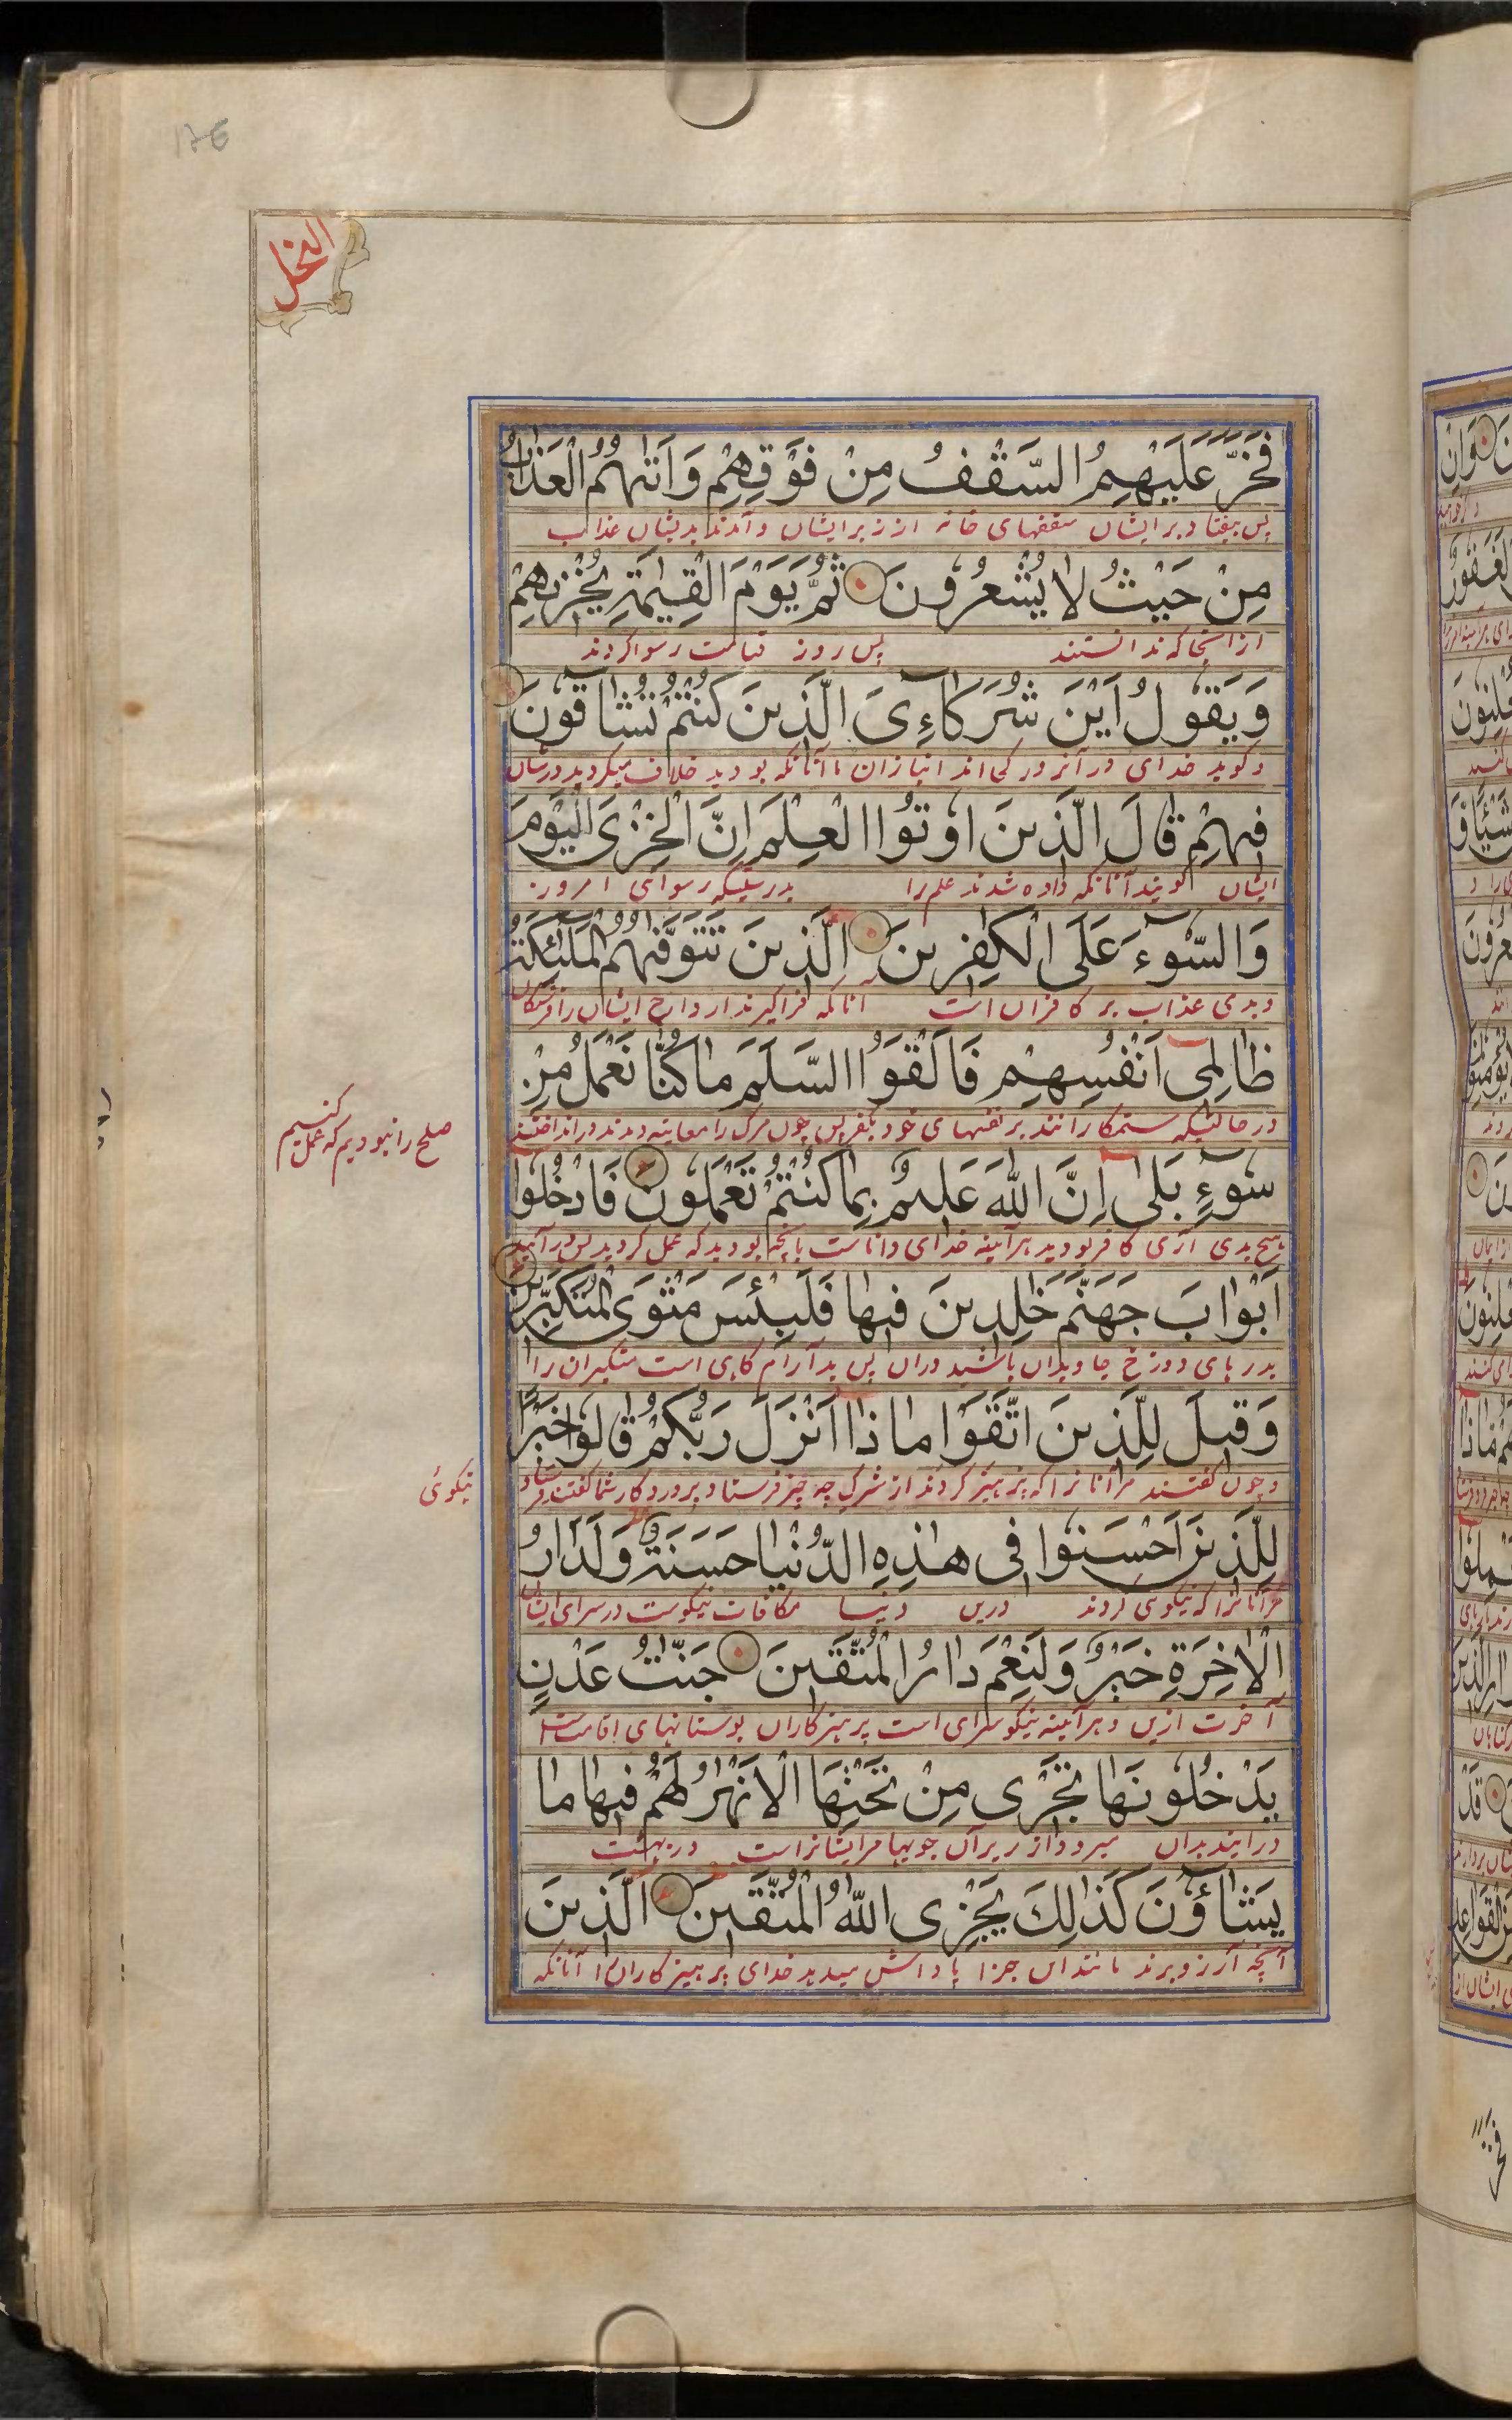 النحل
فَخَرَّ عَلَيْهِمُ السَّقْفُ مِنْ فَوْقِهِمْ وَاَتٰىهُمُ الْعَذَابُ
پس بیفتاد بر ایشان سقفهای خانه از زبر ایشان و آمدند بدیشان عذاب
مِنْ حَيْثُ لَا يَشْعُرُونَ ثُمَّ يَوْمَ الْقِيٰمَةِ يُخْزِيهِمْ
از انجا که ندانستند پس روز قیامت رسوا کردند
وَيَقُولُ اَيْنَ شُرَكَاءِىَ الَّذِينَ كُنْتُمْ تُشَاقُّونَ
و گوید خدای در آنروز کی اند انبازان ما آنانکه بودید خلاف میکردید در شان
فِيهِمْ قَالَ الَّذِينَ اُوتُوا الْعِلْمَ اِنَّ الْخِزْىَ الْيَوْمَ
ایشان گویند آنانکه داده شدند علم را بدرستیکه رسوای امروز
وَالسُّوءَ عَلَى الْكٰفِرِينَ الَّذِينَ تَتَوَفّٰىهُمُ الْمَلٰئِكَةُ
و بدی عذاب بر کافران است آنانکه فراگیرند ارواح ایشان را فرشتگان
ظَالِمِى اَنْفُسِهِمْ فَاَلْقَوُا السَّلَمَ مَا كُنَّا نَعْمَلُ مِنْ
در حالتیکه ستمکارانند بر نفسهای خود بکفر پس چون مرک را معاینه دیدند در انداختند
صلح را نبودیم که عمل کنیم
سُوءٍ بَلٰى اِنَّ اللّٰهَ عَلِيمٌ بِمَا كُنْتُمْ تَعْمَلُونَ فَادْخُلُوا
هیچ بدی آری کافر بودید هر آینه خدای داناست بانچه بودید که عمل کردید پس در آئید
اَبْوَابَ جَهَنَّمَ خٰلِدِينَ فِيهَا فَلَبِئْسَ مَثْوَى الْمُتَكَبِّرِينَ
بدر های دوزخ جاویدان باشید دران پس بد آرام گاهی است متکبران را
وَقِيلَ لِلَّذِينَ اتَّقَوْا مَاذَا اَنْزَلَ رَبُّكُمْ قَالُوا خَيْرًا
و چون گفتند مر آنانرا که پرهیز کردند از شرک چه چیز فرستاد پروردکار شما گفتند فرستاد
نیکوئی
لِلَّذِينَ اَحْسَنُوا فِى هٰذِهِ الدُّنْيَا حَسَنَةٌ وَلَدَارُ
مر آنانرا که نیکوی کردند درین دنیا مکافات نیکوست در سرای ایشان
الْاٰخِرَةِ خَيْرٌ وَلَنِعْمَ دَارُ الْمُتَّقِينَ جَنّٰتُ عَدْنٍ
آخرت ازین و هر آینه نیکو سرای است پرهیزکاران بوستانهای اقامت
يَدْخُلُونَهَا تَجْرِى مِنْ تَحْتِهَا الْاَنْهٰرُ لَهُمْ فِيهَا مَا
درایند بدان میرود از زیر آن جویها مر ایشانراست در بهشت
يَشَاؤُنَ كَذٰلِكَ يَجْزِى اللّٰهُ الْمُتَّقِينَ الَّذِينَ
آنچه آرزو برند مانند این جزا پاداش میدهد خدای پرهیزکاران را آنانکه